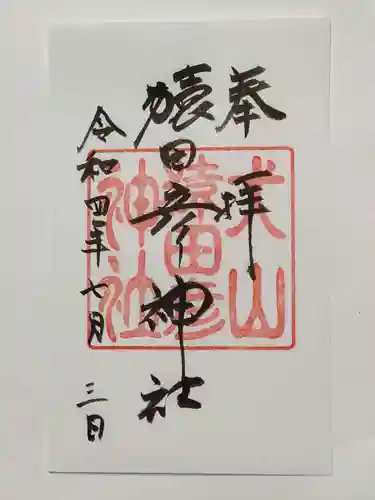 奉拝
猿田彦神社
令和四年七月三日
犬山
猿田彦
神社